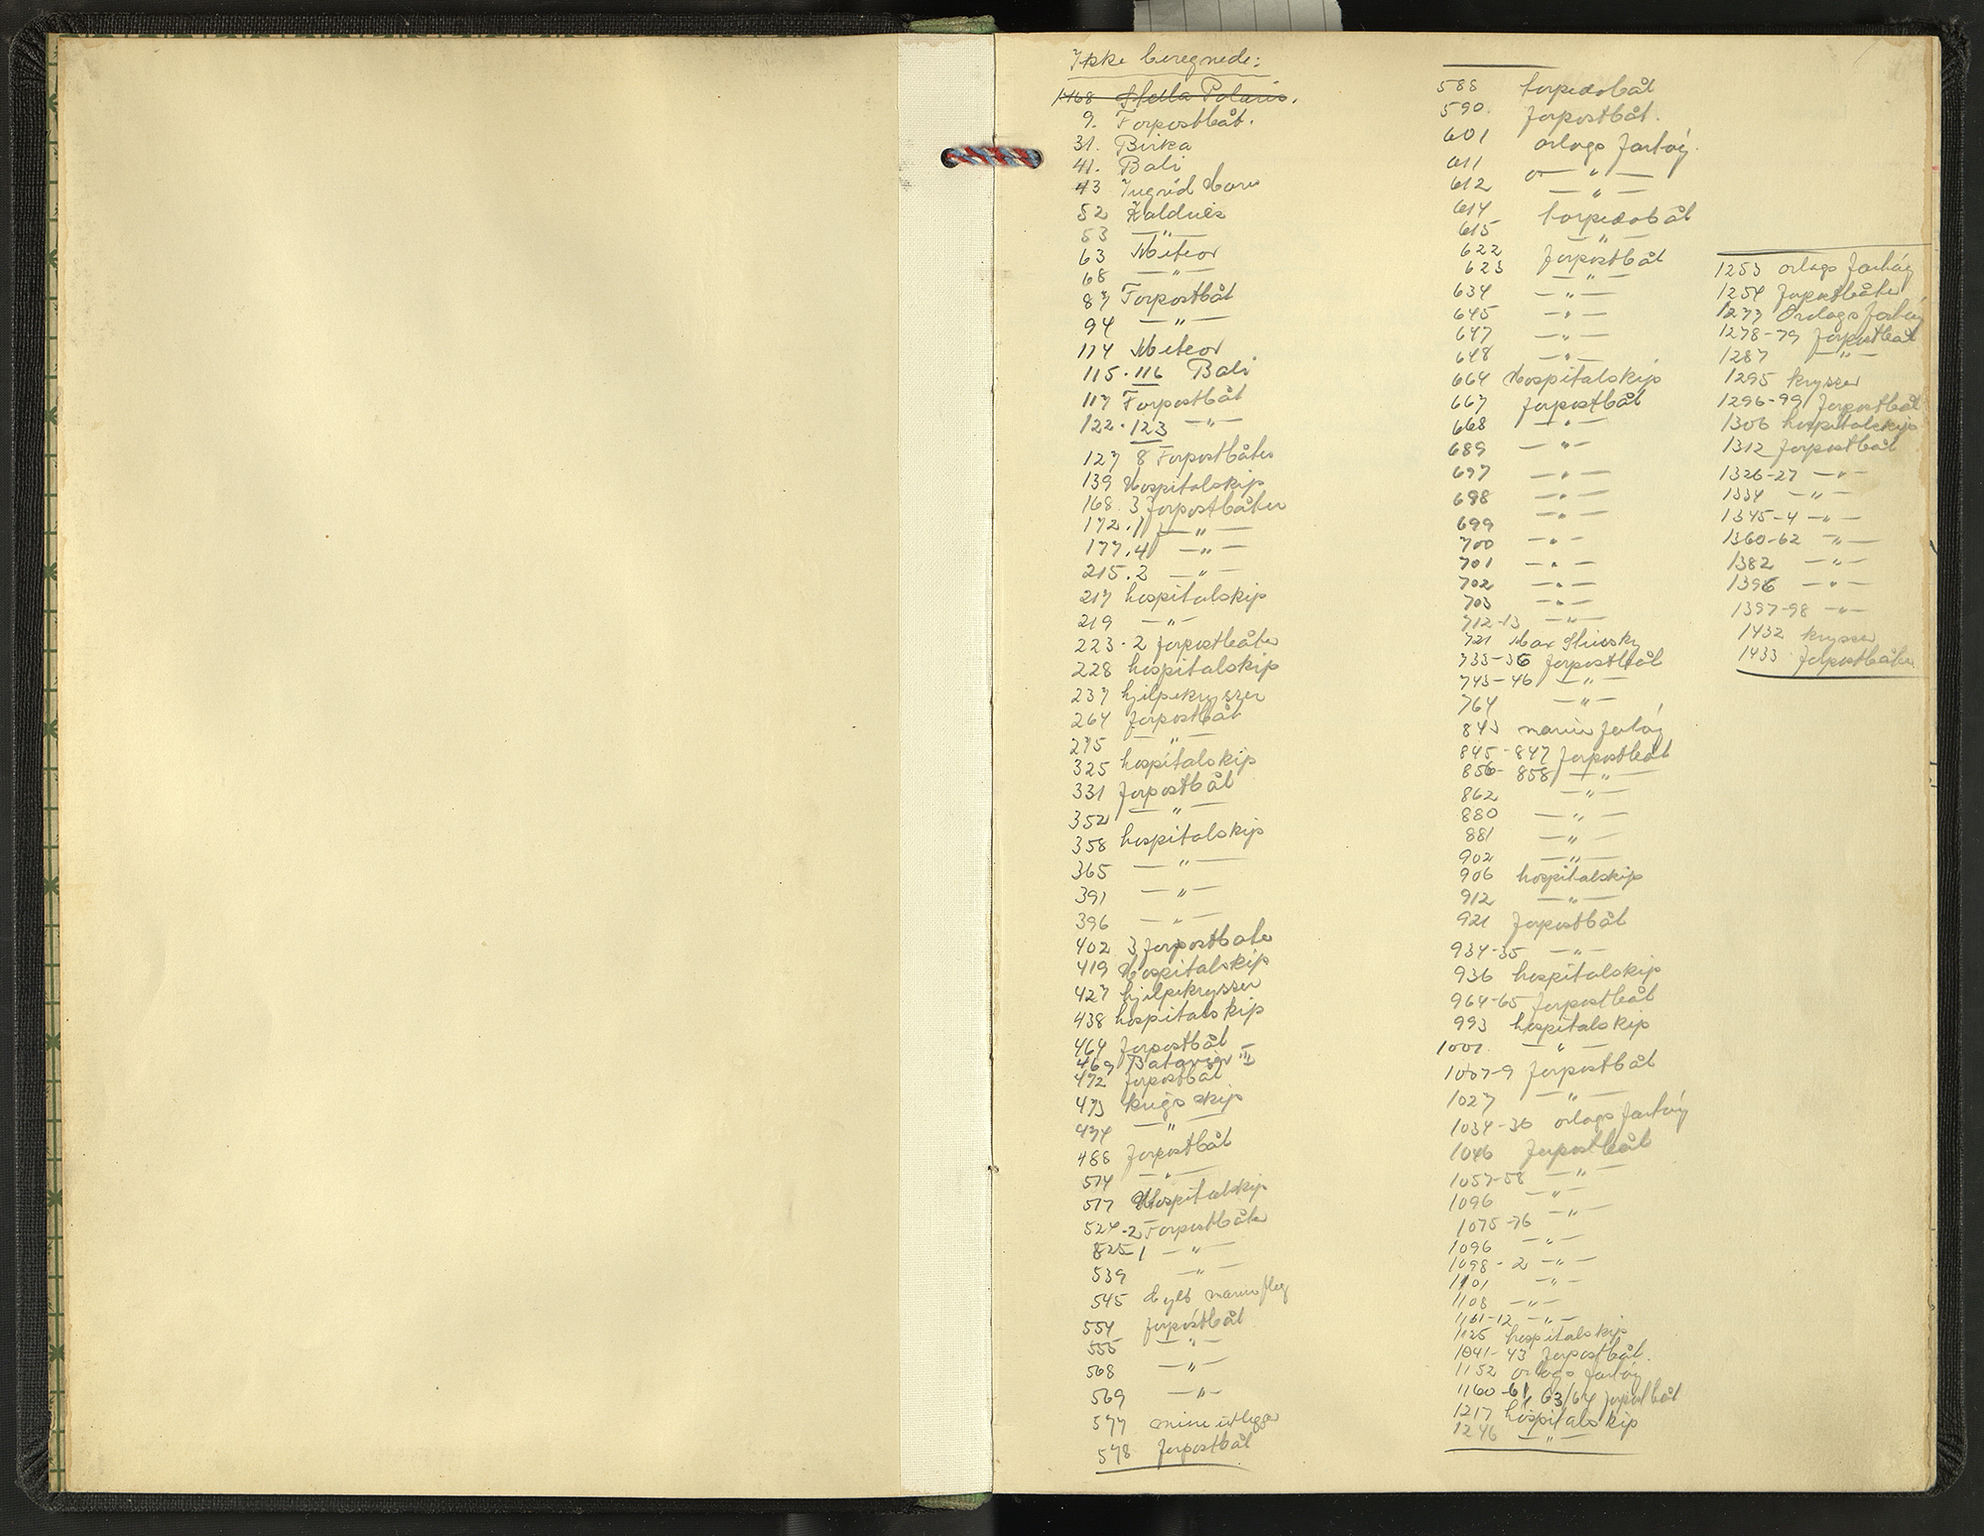 Ikke beregnede:
1468 Stella Polaris.
9. Forpostbåt.
31. Birka
41. Bali
43 Ingrid Horn
52 Kaldnes
53 — " —
63 Meteor
68 — " —
87 Forpostbåt
94 — " —
114 Meteor
115. 116 Bali
117 Forpostbåt
122. 123 — " —
127 8 Forpostbåter
139 Hospitalskip
168. 3 forpostbåter
172. 1 — " —
177. 4 — " —
215. 2 — " —
217 hospitalskip
219 — " —
223 - 2 forpostbåter
228 hospitalskip
237 hjelpekrysser
264 forpostbåt
275 — " —
325 hospitalskip
331 forpostbåt
352 — " —
358 hospitalskip
365 — " —
391 — " —
396 — " —
402 3 forpostbåter
419 Hospitalskip
427 hjelpekrysser
438 hospitalskip
464 forpostbåt
469 III
472 forpostbåt
473 krigsskip
474 — " —
488 forpostbåt
514 — " —
517 Hospitalskip
524 - 2 Forpostbåter
825 1 — " —
539 — " —
545 marinefleg
554 forpostbåt
555 — " —
568 — " —
569 — " —
577 mineutlegger
578 forpostbåt
588 torpedobåt
590. forpostbåt.
601 orlogs fartøy.
611 — " —
612 — " —
614 torpedobåt
615 — " —
622 forpostbåt
623 — " —
634 — " —
645 — " —
647 — " —
648 — " —
664 Hospitalskip
667 forpostbåt
668 — " —
689 — " —
697 — " —
698 — " —
699 — " —
700 — " —
701 — " —
702 — " —
703 — " —
712-13 — " —
721 Max
735-36 forpostbåt
745-46 — " —
764 — " —
843 marinefartøy
845-847 forpostbåt
856-858 — " —
862 — " —
880 — " —
881 — " —
902 — " —
906 hospitalskip
912 — " —
921 forpostbåt
934-35 — " —
936 hospitalskip
964-65 forpostbåt
993 hospitalskip
1001. — " —
1007-9 forpostbåt
1027 — " —
1034-36 orlogs fartøy
1046 forpostbåt
1057-58 — " —
1096 — " —
1075-76 — " —
1096 — " —
1098 - 2 — " —
1101 — " —
1108 — " —
1161-12 — " —
1125 hospitalskip
1041-43 forpostbåt.
1152 orlogs fartøy
1160-61, 63/64 forpostbåt
1217 hospitalskip
1246 — " —
1253 orlogs fartøy
1254 forpostbåter
1277 Orlogs fartøy
1278-79 forpostbåt
1287 — " —
1295 krysser
1296-99 forpostbåt
1306 hospitalskip
1312 forpostbåt
1326-27 — " —
1334 — " —
1345-4 — " —
1360-62 — " —
1382 — " —
1396 — " —
1397-98 — " —
1432 krysser
1433 forpostbåter